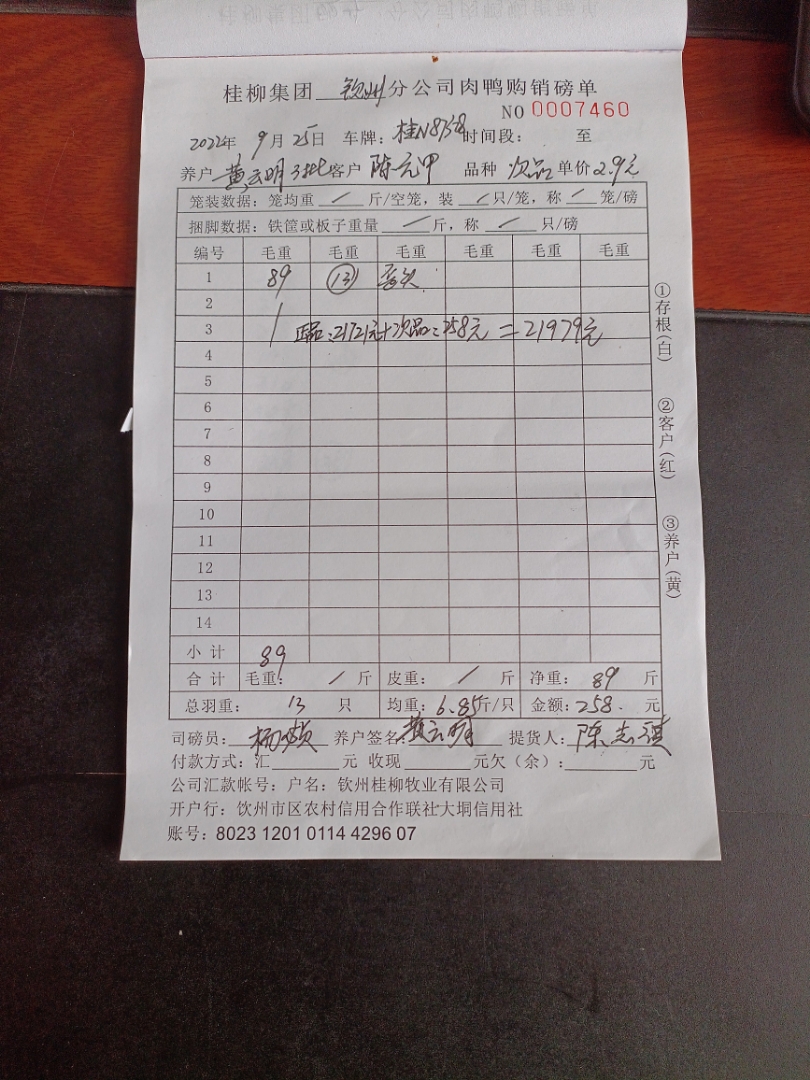 桂柳集团 钦州 分公司肉鸭购销磅单
NO 0007460
2022年 9月25日 车牌: 时间段: 至
养户 黄云明 3批 客户 陈元甲 品种 次品 单价 2.9元
笼装数据: 笼均重 / 斤/空笼, 装 / 只/笼, 称 / 笼/磅
捆脚数据: 铁筐或板子重量 / 斤, 称 / 只/磅
编号 毛重 毛重 毛重 毛重 毛重 毛重
1 89 13
2
3 正品:21721元+次品:258元=21979元
4
5
6
7
8
9
10
11
12
13
14
小计 89
合计 毛重: / 斤 皮重: / 斤 净重: 89 斤
总羽重: 13 只 均重: 6.85斤/只 金额: 258. 元
司磅员: 养户签名: 黄云明 提货人: 陈志
付款方式: 汇 元 收现 元欠(余): 元
公司汇款帐号: 户名: 钦州桂柳牧业有限公司
开户行: 饮州市区农村信用合作联社大垌信用社
账号: 8023 1201 0114 4296 07
①存根(白)
②客户(红)
③养户(黄)